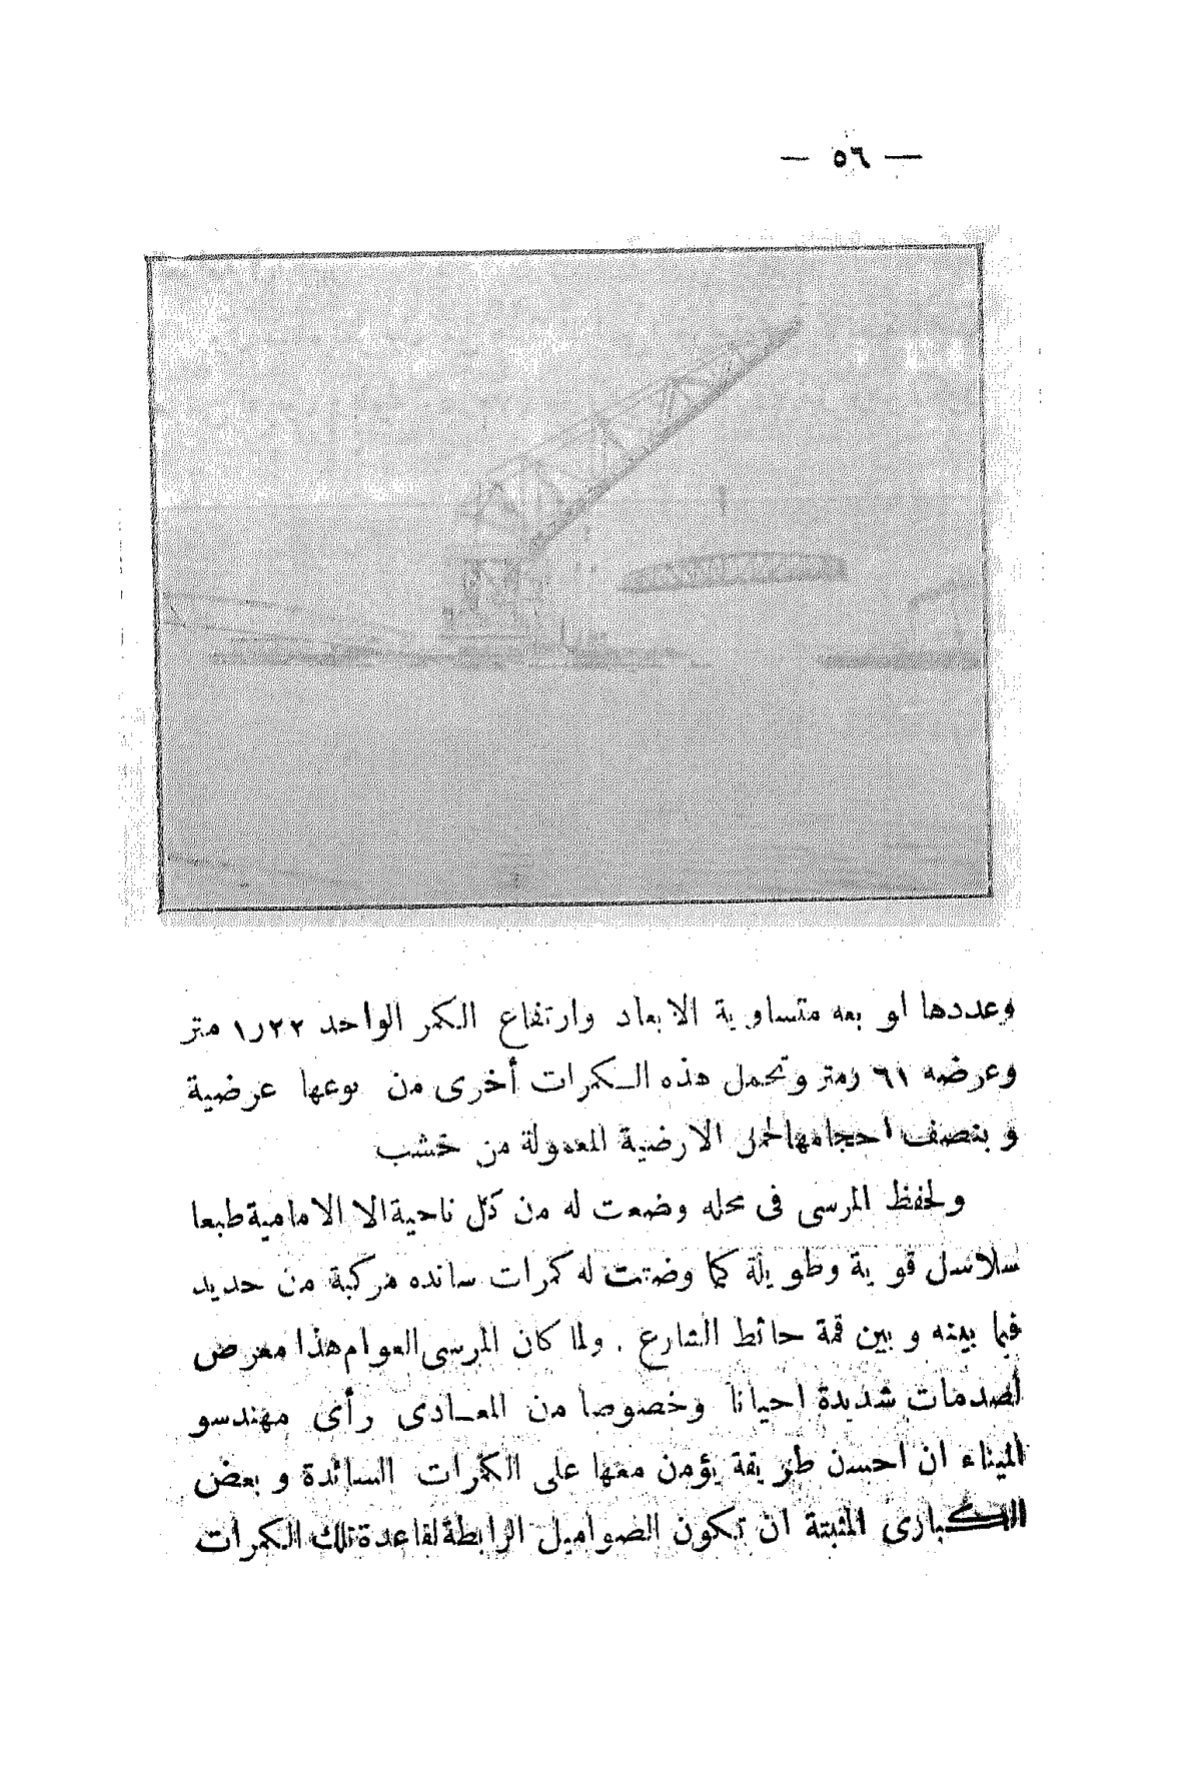 — ٥٦ —
وعددها اربعه متساوية الابعاد وارتفاع الكمر الواحد ١٫٢٢ متر
وعرضه ٦١ رمتر وتحمل هذه الكمرات أخرى من نوعها عرضية
وبنصف احجامها لحمل الارضية المعمولة من خشب
ولحفظ المرسى فى محله وضعت له من كل ناحية الا الامامية طبعا
سلاسل قوية وطويلة كما وضعت له كمرات سانده مركبة من حديد
فيما بينه وبين قمة حائط الشارع . ولما كان المرسى العوام هذا معرض
لصدمات شديدة احيانا وخصوصا من المعادى رأى مهندسو
الميناء ان احسن طريقة يؤمن معها على الكمرات الساندة وبعض
الكبارى المثبتة ان تكون الصواميل الرابطة لقاعدة تلك الكمرات